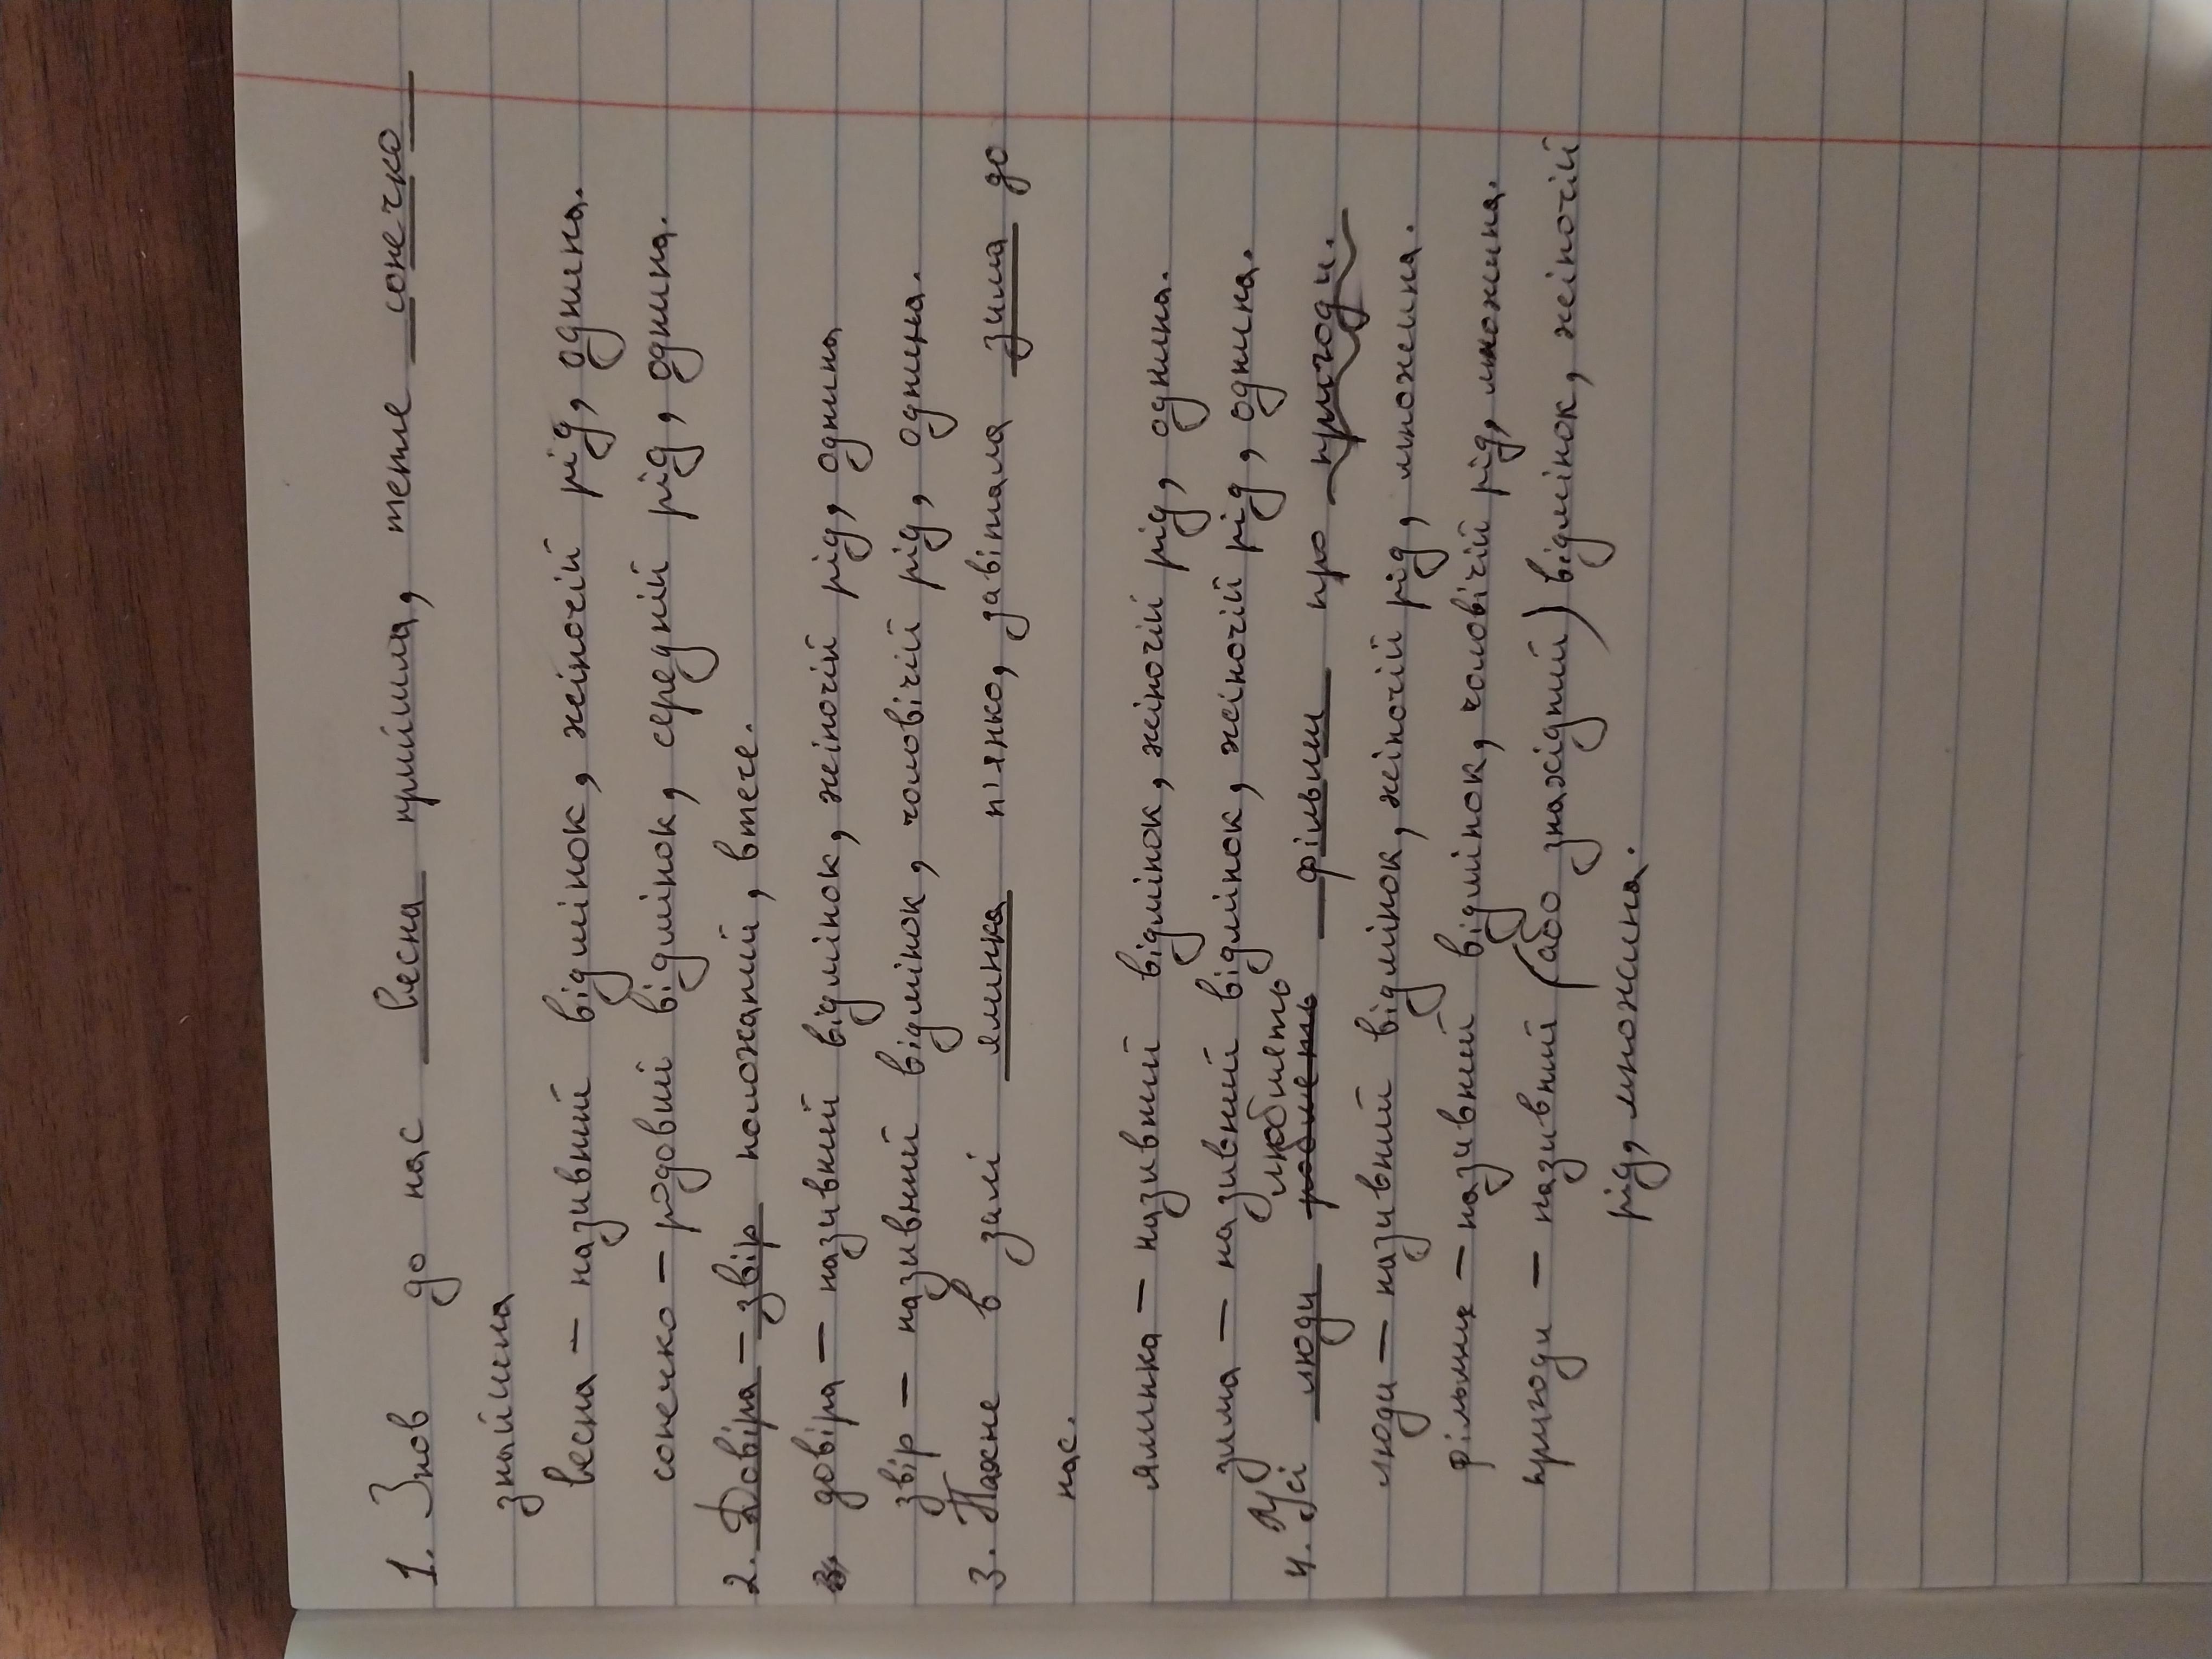 1. Знов до нас весна прийшла, тепле сонечко
знайшла
весна – називний відмінок, жіночій рід, однина.
сонечко – родовий відмінок, середній рід, однина.
2. Довіра – звір полоханий, втече.
довіра – називний відмінок, жіночій рід, однина
звір – називний відмінок, чоловічій рід, однина.
3. Пахне в залі ялинка п'янко, завітала зима до
нас.
ялинка – називний відмінок, жіночій рід, однина.
зима – називний відмінок, жіночій рід, однина.
люблять
4. Усі люди фільми про пригоди.
люди – називний відмінок, жіночій рід, множина.
фільми – називний відмінок, чоловічій рід, множина.
пригоди – називний (або знахідний) відмінок, жіночій
рід, множина.